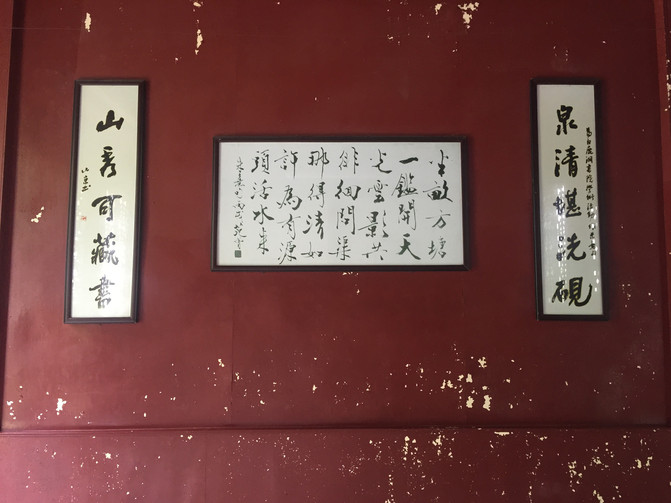 泉清堪洗硯
山秀可藏書
半畝方塘
一鑑開天
光雲影共
徘徊問渠
那得清如
許為有源
頭活水來